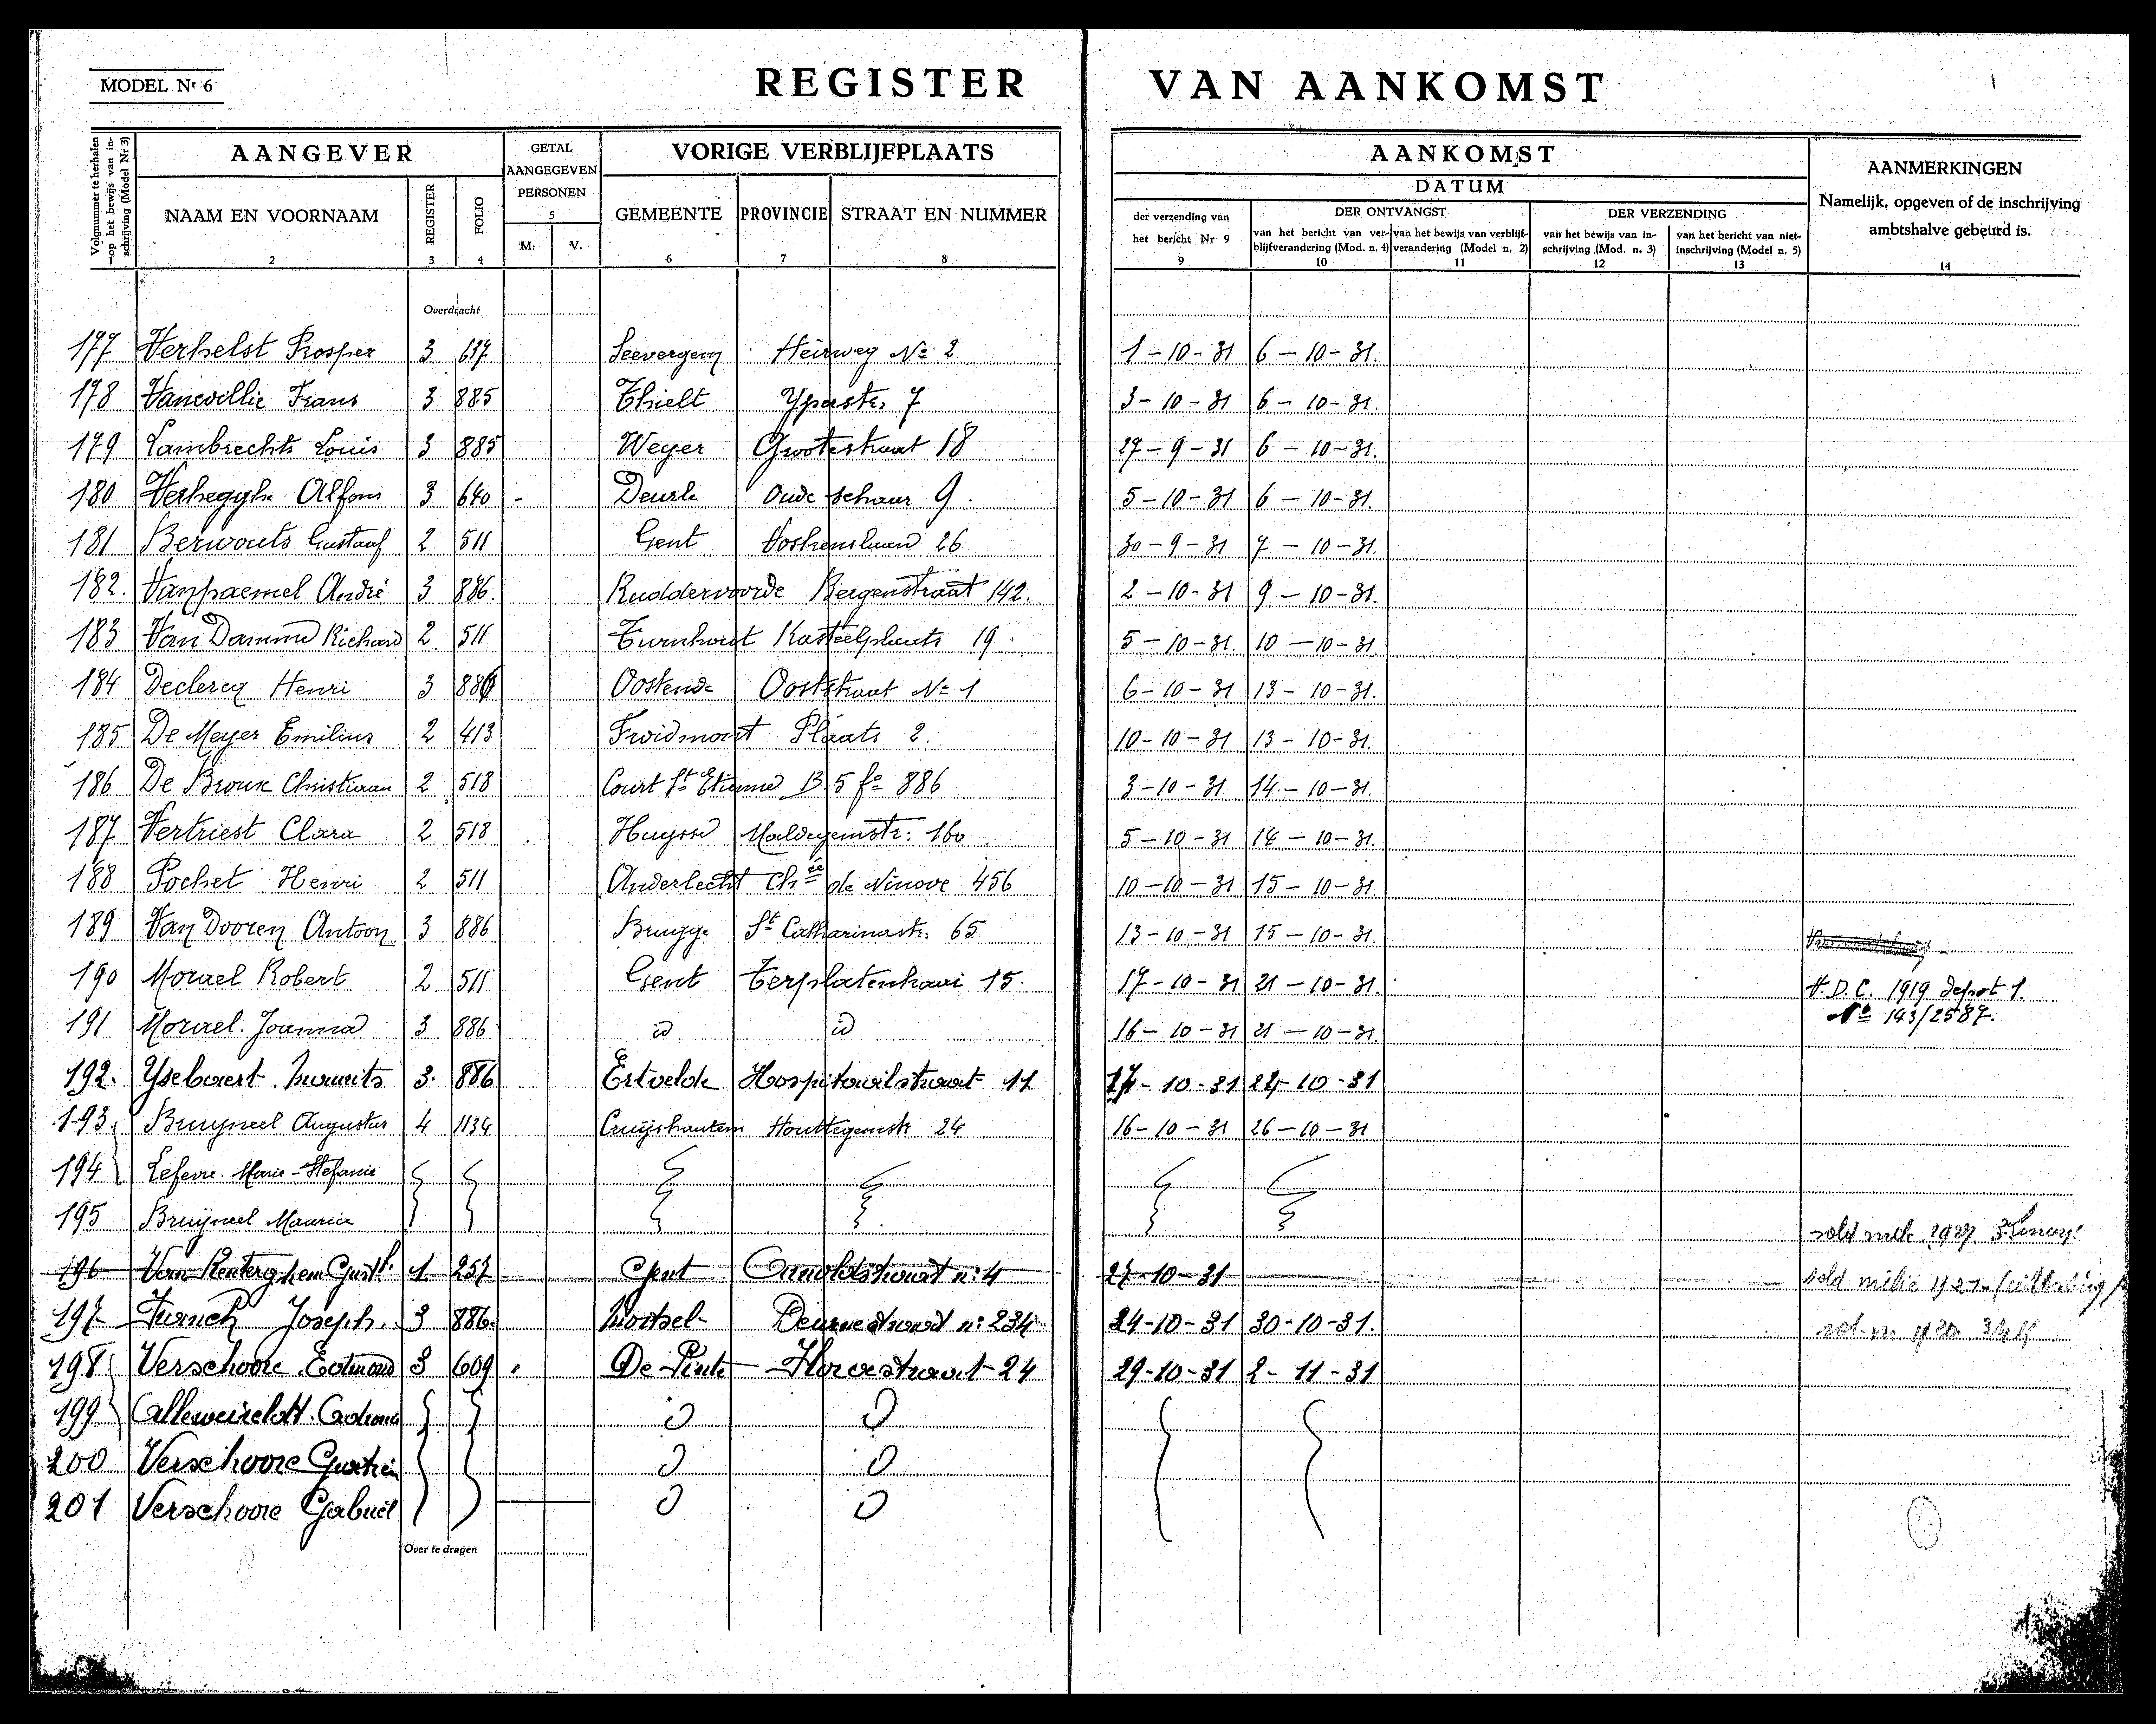 MODEL Nr 6
REGISTER VAN AANKOMST
Volgnummer te herhalen op het bewijs van inschrijving (Model Nr 3)
1
AANGEVER
NAAM EN VOORNAAM
2
REGISTER
3
FOLIO
4
GETAL AANGEGEVEN PERSONEN
5
M. V.
VORIGE VERBLIJFPLAATS
GEMEENTE
6
PROVINCIE
7
STRAAT EN NUMMER
8
AANKOMST
DATUM
der verzending van het bericht Nr 9
9
DER ONTVANGST
van het bericht van verblijfverandering (Mod. n. 4)
10
van het bewijs van verblijfverandering (Model n. 2)
11
DER VERZENDING
van het bewijs van inschrijving (Mod. n. 3)
12
van het bericht van niet-inschrijving (Model n. 5)
13
AANMERKINGEN
Namelijk, opgeven of de inschrijving ambtshalve gebeurd is.
14
Overdracht
177 Verhelst Prosper 3 637 Seevergem Heirweg No 2 1-10-31 6-10-31.
178 Vanevillie Frans 3 885 Thielt Yperstr. 7 3-10-31 6-10-31.
179 Lambrechts Louis 3 885 Weyer Grootestraat 18 27-9-31 6-10-31.
180 Verhegghe Alfons 3 640 - Deurle Oude schuur 9. 5-10-31 6-10-31.
181 Berwouts Gustaaf 2 511 Gent Voskenslaan 26 30-9-31 7-10-31.
182. Vanpaemel André 3 886. Ruddervoorde Bergenstraat 142. 2-10-31 9-10-31.
183 Van Damme Richard 2. 511 Turnhout Kasteelplaats 19. 5-10-31. 10-10-31.
184 Declercq Henri 3 886 Oostende Ooststraat No 1 6-10-31 13-10-31.
185 De Meyer Emilius 2 413 Froidmont Plaats 2. 10-10-31 13-10-31.
186 De Broux Christiaan 2 518 Court St Etienne B 5 fo 886 3-10-31 14-10-31.
187 Vertriest Clara 2 518 Huysse Maldegemstr. 160 5-10-31 14-10-31.
188 Pochet Henri 2 511 Anderlecht Chée de Ninove 456 10-10-31 15-10-31.
189 Van Dooren Antoon 3 886 Brugge St Catharinastr. 65 13-10-31 15-10-31.
190 Morael Robert 2. 511 Gent Terplatenkaai 15. 17-10-31 21-10-31. V.D.C. 1919 depot 1.
No 143/2587.
191 Morael Joanna 3 886 id id 16-10-31 21-10-31.
192. Ysebaert Maurits 3. 886 Ertvelde Hospitaalstraat 11 17-10-31 24-10-31
193. Bruyneel Augustus 4 1134 Cruyshautem Houttegemstr 24 16-10-31 26-10-31
194 Lefevre Marie-Stefanie
195 Bruyneel Maurice
196 Van Renterghem Gust. 1 257 Gent Arnoldstraat n: 4 27-10-31
197 Joseph. 3 886. Mortsel Deurnestraat n: 234 24-10-31 30-10-31.
198 Verschoore Edmond 3 609 De Pinte Florastraat 24 29-10-31 2-11-31
199
200 Verschoore
201 Verschoore Gabriël
Over te dragen